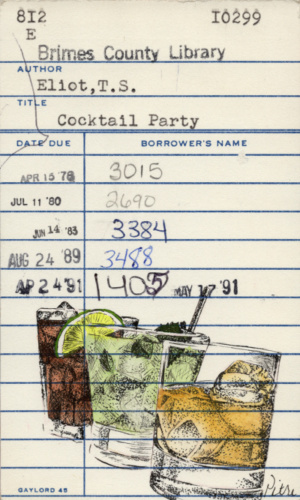 812 10299
E
Brimes County Library
AUTHOR
Eliot,T.S.
TITLE
Cocktail Party
DATE DUE BORROWER'S NAME
APR 15 76 3015
JUL 11 '80 2690
JUN 14 '83 3384
AUG 24 '89 3488
AP 24 '91 1405 MAY 17 '91
GAYLORD 45